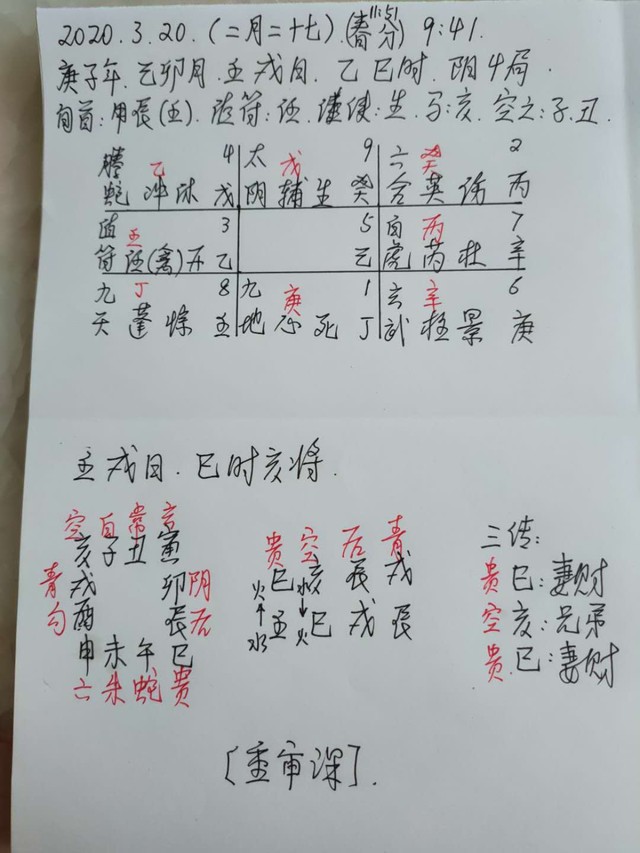 2020.3.20.(二月二十七)(春分 11:51) 9:41.
庚子年.乙卯月.壬戌日.乙巳时.阴4局.
旬首:甲辰(壬).值符:任.值使:生.马:亥.空亡:子.丑.
螣 乙 4 太 戊 9 六 癸 2
蛇 冲 休 戊 阴 辅 生 癸 合 英 伤 丙
值 壬 3 5 白 丙 7
符 任(禽)开 乙 乙 虎 芮 杜 辛
九 丁 8 九 庚 1 玄 辛 6
天 蓬 惊 壬 地 心 死 丁 武 柱 景 庚
壬戌日.巳时亥将.
空 白 常 玄
亥 子 丑 寅 贵 空 后 青 三传:
青 戌 卯 阴 火 巳 水 亥 辰 戌 贵 巳:妻财
勾 酉 辰 后 水 壬 火 巳 戌 辰 空 亥:兄弟
申 未 午 巳 贵 巳:妻财
六 朱 蛇 贵
[重审课].